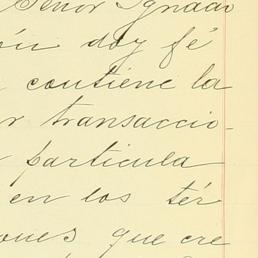 Señor Ignacio
ún doy fé
contiene la
r transaccio-
particula
en los tér
ones que cre